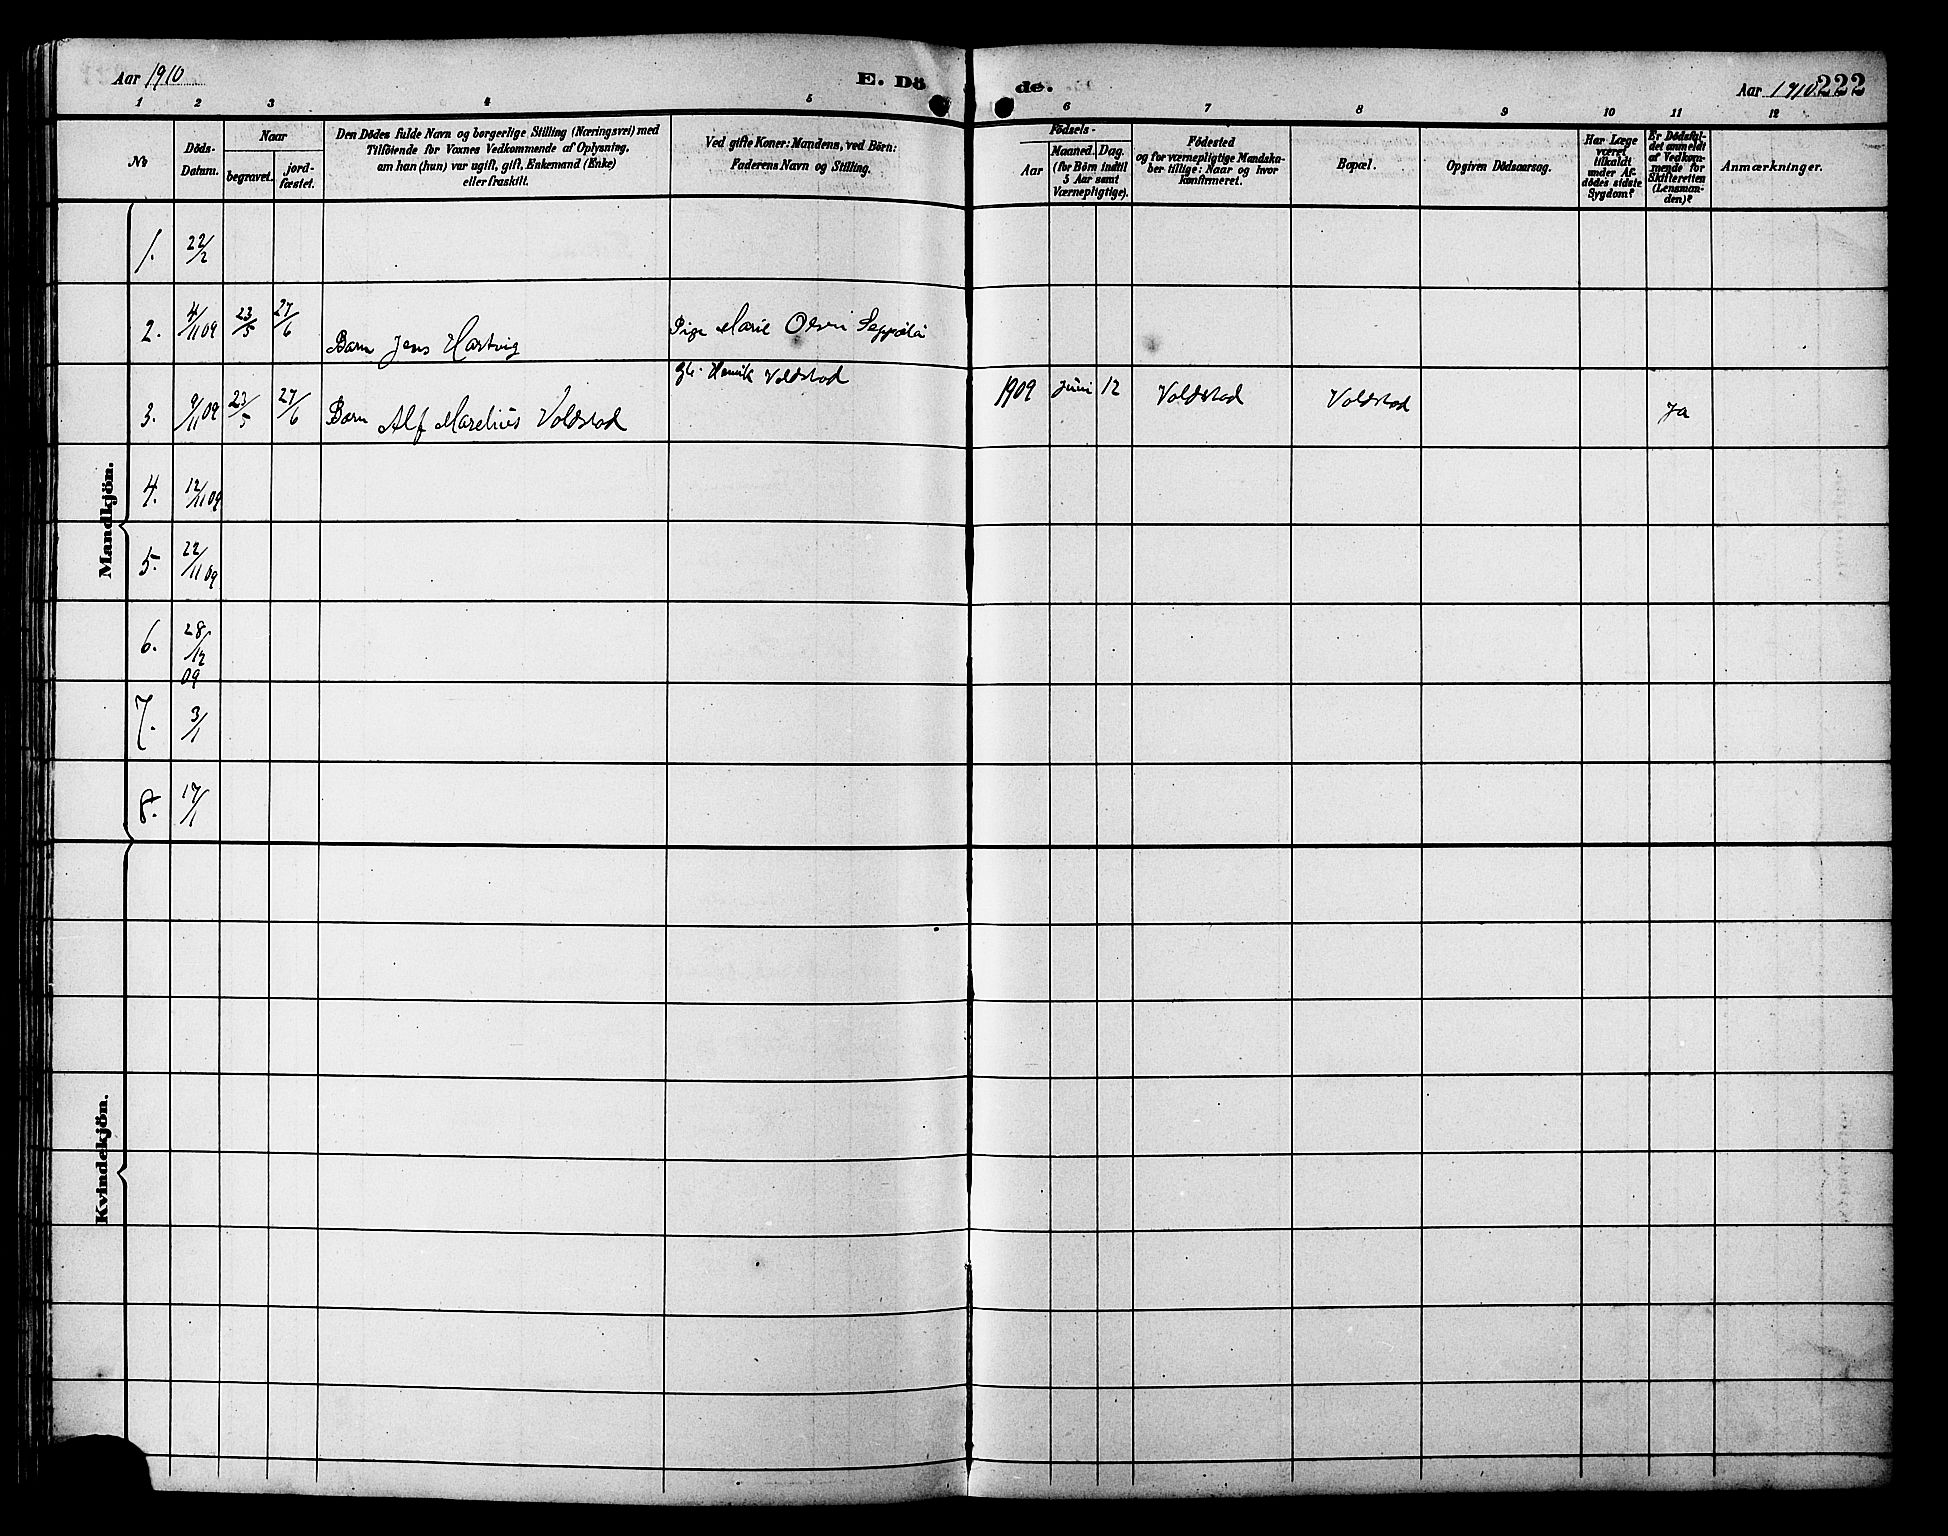 Aar 1910
E. Dö
de.
Aar 1910.
222
1 2 3 4 5 6 7 8 9 10 11 12
No
Döds-
Datum.
Naar
begravet.
jord-
fæstet.
Den Dödes fulde Navn og borgerlige Stilling (Næringsvei) med
Tilföiende for Voxnes Vedkommende af Oplysning,
om han (hun) var ugift, gift, Enkemand (Enke)
eller fraskilt.
Ved gifte Koner: Mandens, ved Börn:
Faderens Navn og Stilling.
Födsels-
Aar
Maaned. Dag.
(for Börn indtil
5 Aar samt
Værnepligtige).
Födested
og for værnepligtige Mandska-
ber tillige: Naar og hvor
konfirmeret.
Bopæl.
Opgiven Dödsaarsag.
Har Læge
været
tilkaldt
under Af-
dödes sidste
Sygdom?
Er Dödsfal-
det anmeldt
af Vedkom-
mende for
Skifteretten
(Lensman-
den)?
Anmærkninger.
Mandkjön.
1. 22/2
2. 4/11 09 23/5 27/6 Barn Jens Hartvig Pige Marie Olsen
3. 9/11 09 23/5 27/6 Barn Alf Marelius Voldstad Henrik Voldstad 1909 Juni 12 Voldstad Voldstad Ja
4. 12/11 09
5. 22/11 09
6. 28/12 09
7. 3/1
8. 17/1
Kvindekjön.